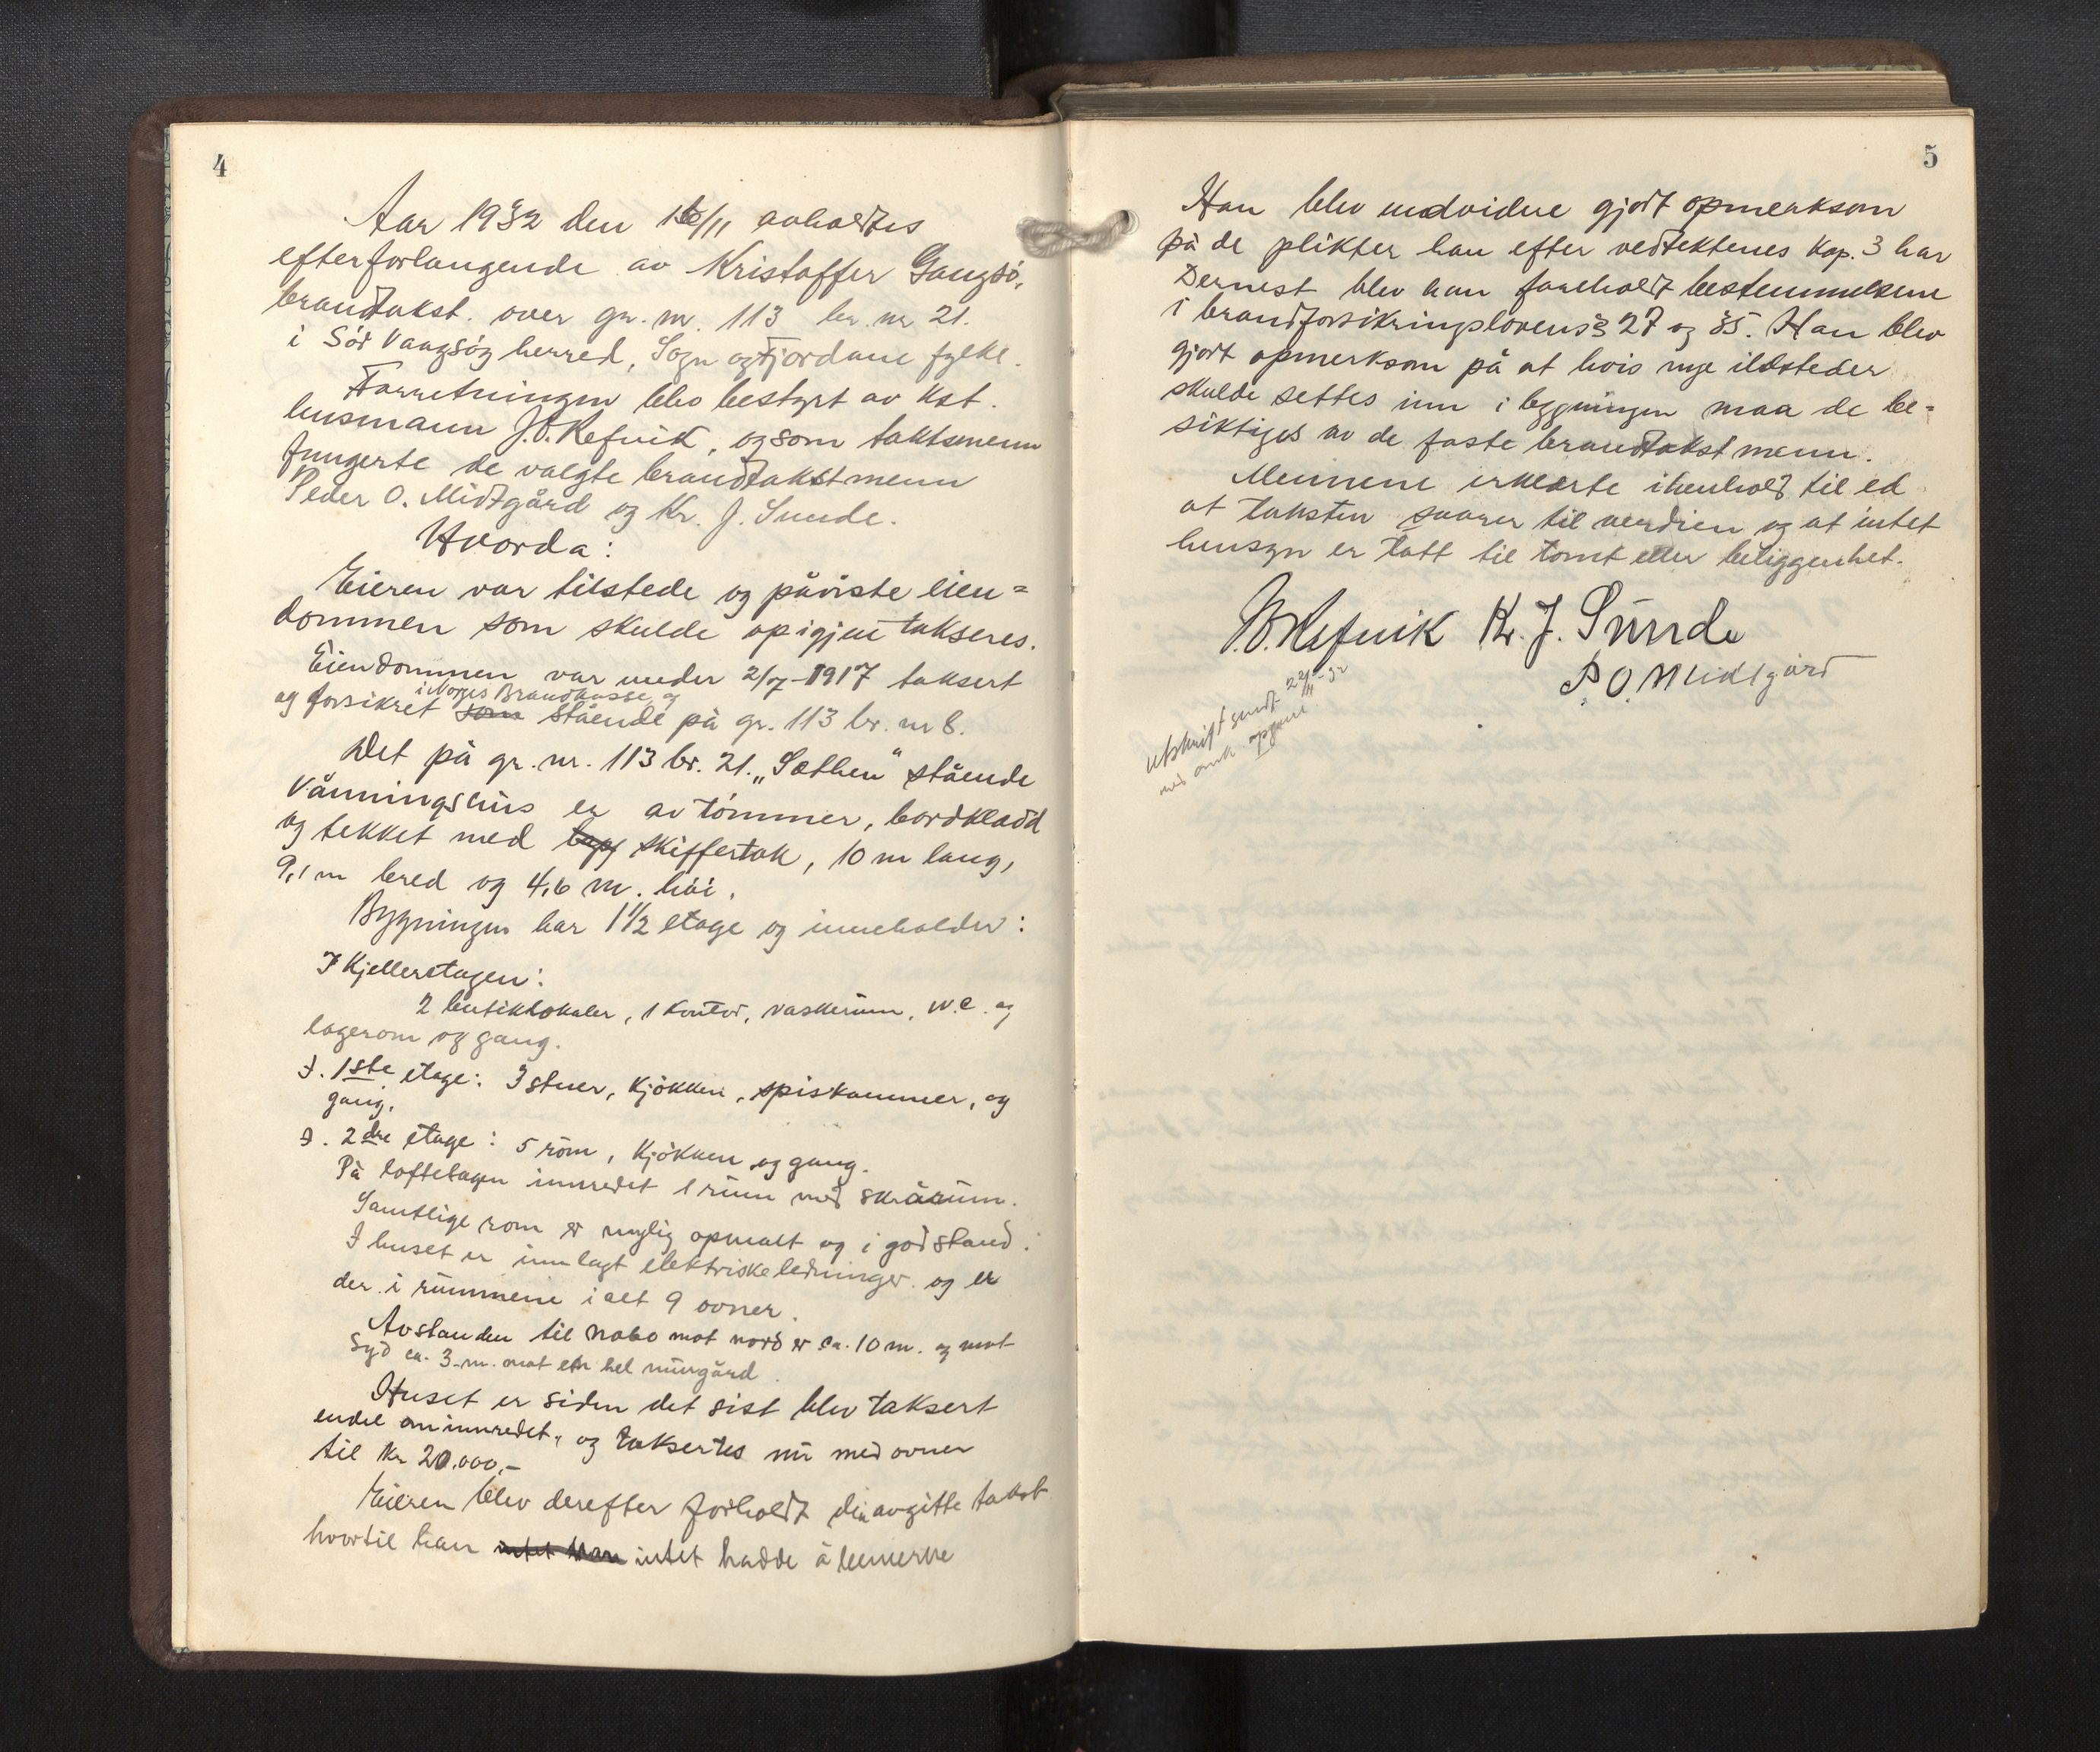 4
Aar 1932 den 16/11 avholdtes
efter forlangende av Kristoffer Gangsö,
brandtakst. over gr. nr. 113 br. nr 21.
i Sör Vaagsöy herred, Sogn og Fjordane fylke.
Forretningen blev bestyrt av Kst.
lensmann J. O. Refvik, og som takstmenn
fungerte de valgte brandtakstmenn
Peder O. Midtgård og Kr. J. Sunde.
Hvorda:
Eieren var tilstede og påviste eien=
dommen som skulde op igjen takseres.
Eiendommen var under 2/7-1917 taksert
i Norges Brandkasse og
og forsikret som stående på gr. 113 br. nr 8.
Det på gr. nr. 113 br. 21. „Sæthen" stående
Våningshus er av tömmer, bordkladd
og tekket med skiffertak, 10 m lang,
9,1 m bred og 4,6 m. höi.
Bygningen har 1 1/2 etage og inneholder:
I Kjelleretagen:
2 butiklokaler, 1 kontor, vaskerum, W.C. og
lagerom og gang.
I. 1ste etage: 3 stuer, kjökken, spiskammer, og
gang.
I. 2dre etage: 5 rom, kjökken og gang.
På loftetagen innredet 1 rum med skrårum.
Samtlige rom er nylig opmalt og i god stand.
I huset er innlagt elektriske ledninger og er
der i rummene i alt 9 ovner.
Avstanden til nabo mot nord er ca. 10 m. og mot
Syd ca. 3 m. mot en hel murgård.
Huset er siden det sist blev taksert
endel ominnredet, og taksertes nu med ovner
til kr 20.000,-
Eieren blev derefter forholdt den avgitte takst
hvortil han intet han intet hadde å bemerke
5
Han blev endvidere gjort opmerksom
på de plikter han efter vedtektenes kap. 3 har
Dernest blev han foreholdt bestemmelsene
i brandforsikringslovens § 27 og 35. Han blev
gjort opmerksom på at hvis nye ildsteder
skulde settes inn i bygningen maa de be=
siktiges av de faste brandtakstmenn.
Mennene erklærte i henhold til ed
at taksten svarer til verdien og at intet
hensyn er tatt til tomt eller beliggenhet.
J. O. Refvik Kr. J. Sunde
P. O. Midtgård
Utskrift sendt 22/11
med